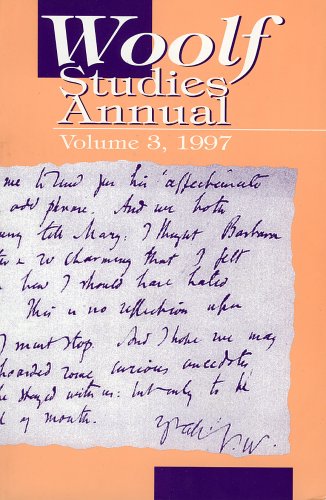 Woolf
Studies
Annual
Volume 3, 1997
me to find for his "affectionate
odd phrase. And we both
till Mary: I thought Barbara
so charming that I felt
how I should have hated
This is no reflection upon
I must stop. And I hope we may
hearded some curious anecdotes
he stayed with us: but only to be
of month.
V.W.